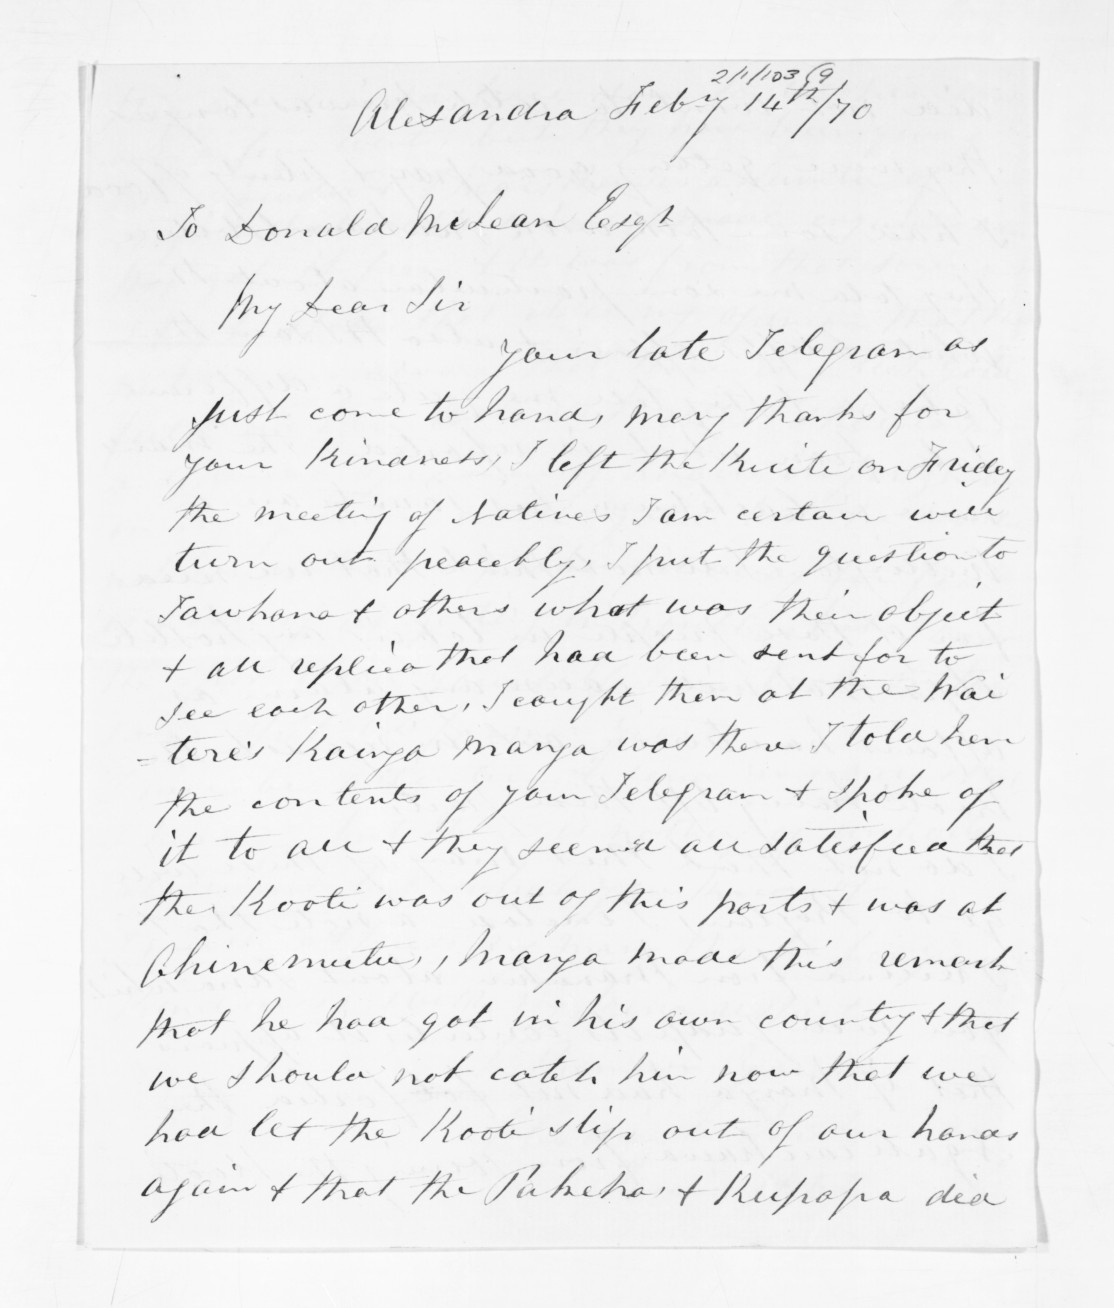 2/1/103 69
Alexandra Feby 14th/70
To Donald McLean Esqr
My Dear Sir
your late Telegram as
just come to hand, many thanks for
your Kindness, I left the Kuite on Friday
the meeting of Natives I am certain will
turn out peacebly, I put the question to
Tawhana & others what was their object
& all replied that had been sent for to
see each other, I caught them at the Wai
=tere's Kainga Manga was there I told him
the contents of your Telegram & spoke of
it to all & they seemed all satisfied that
the Kooti was out of this parts & was at
Ohinemutu, Manga made this remark
that he had got in his own country & that
we should not catch him now that we
had let the Kooti slip out of our hands
again & that the Pakeha, & Kupapa did